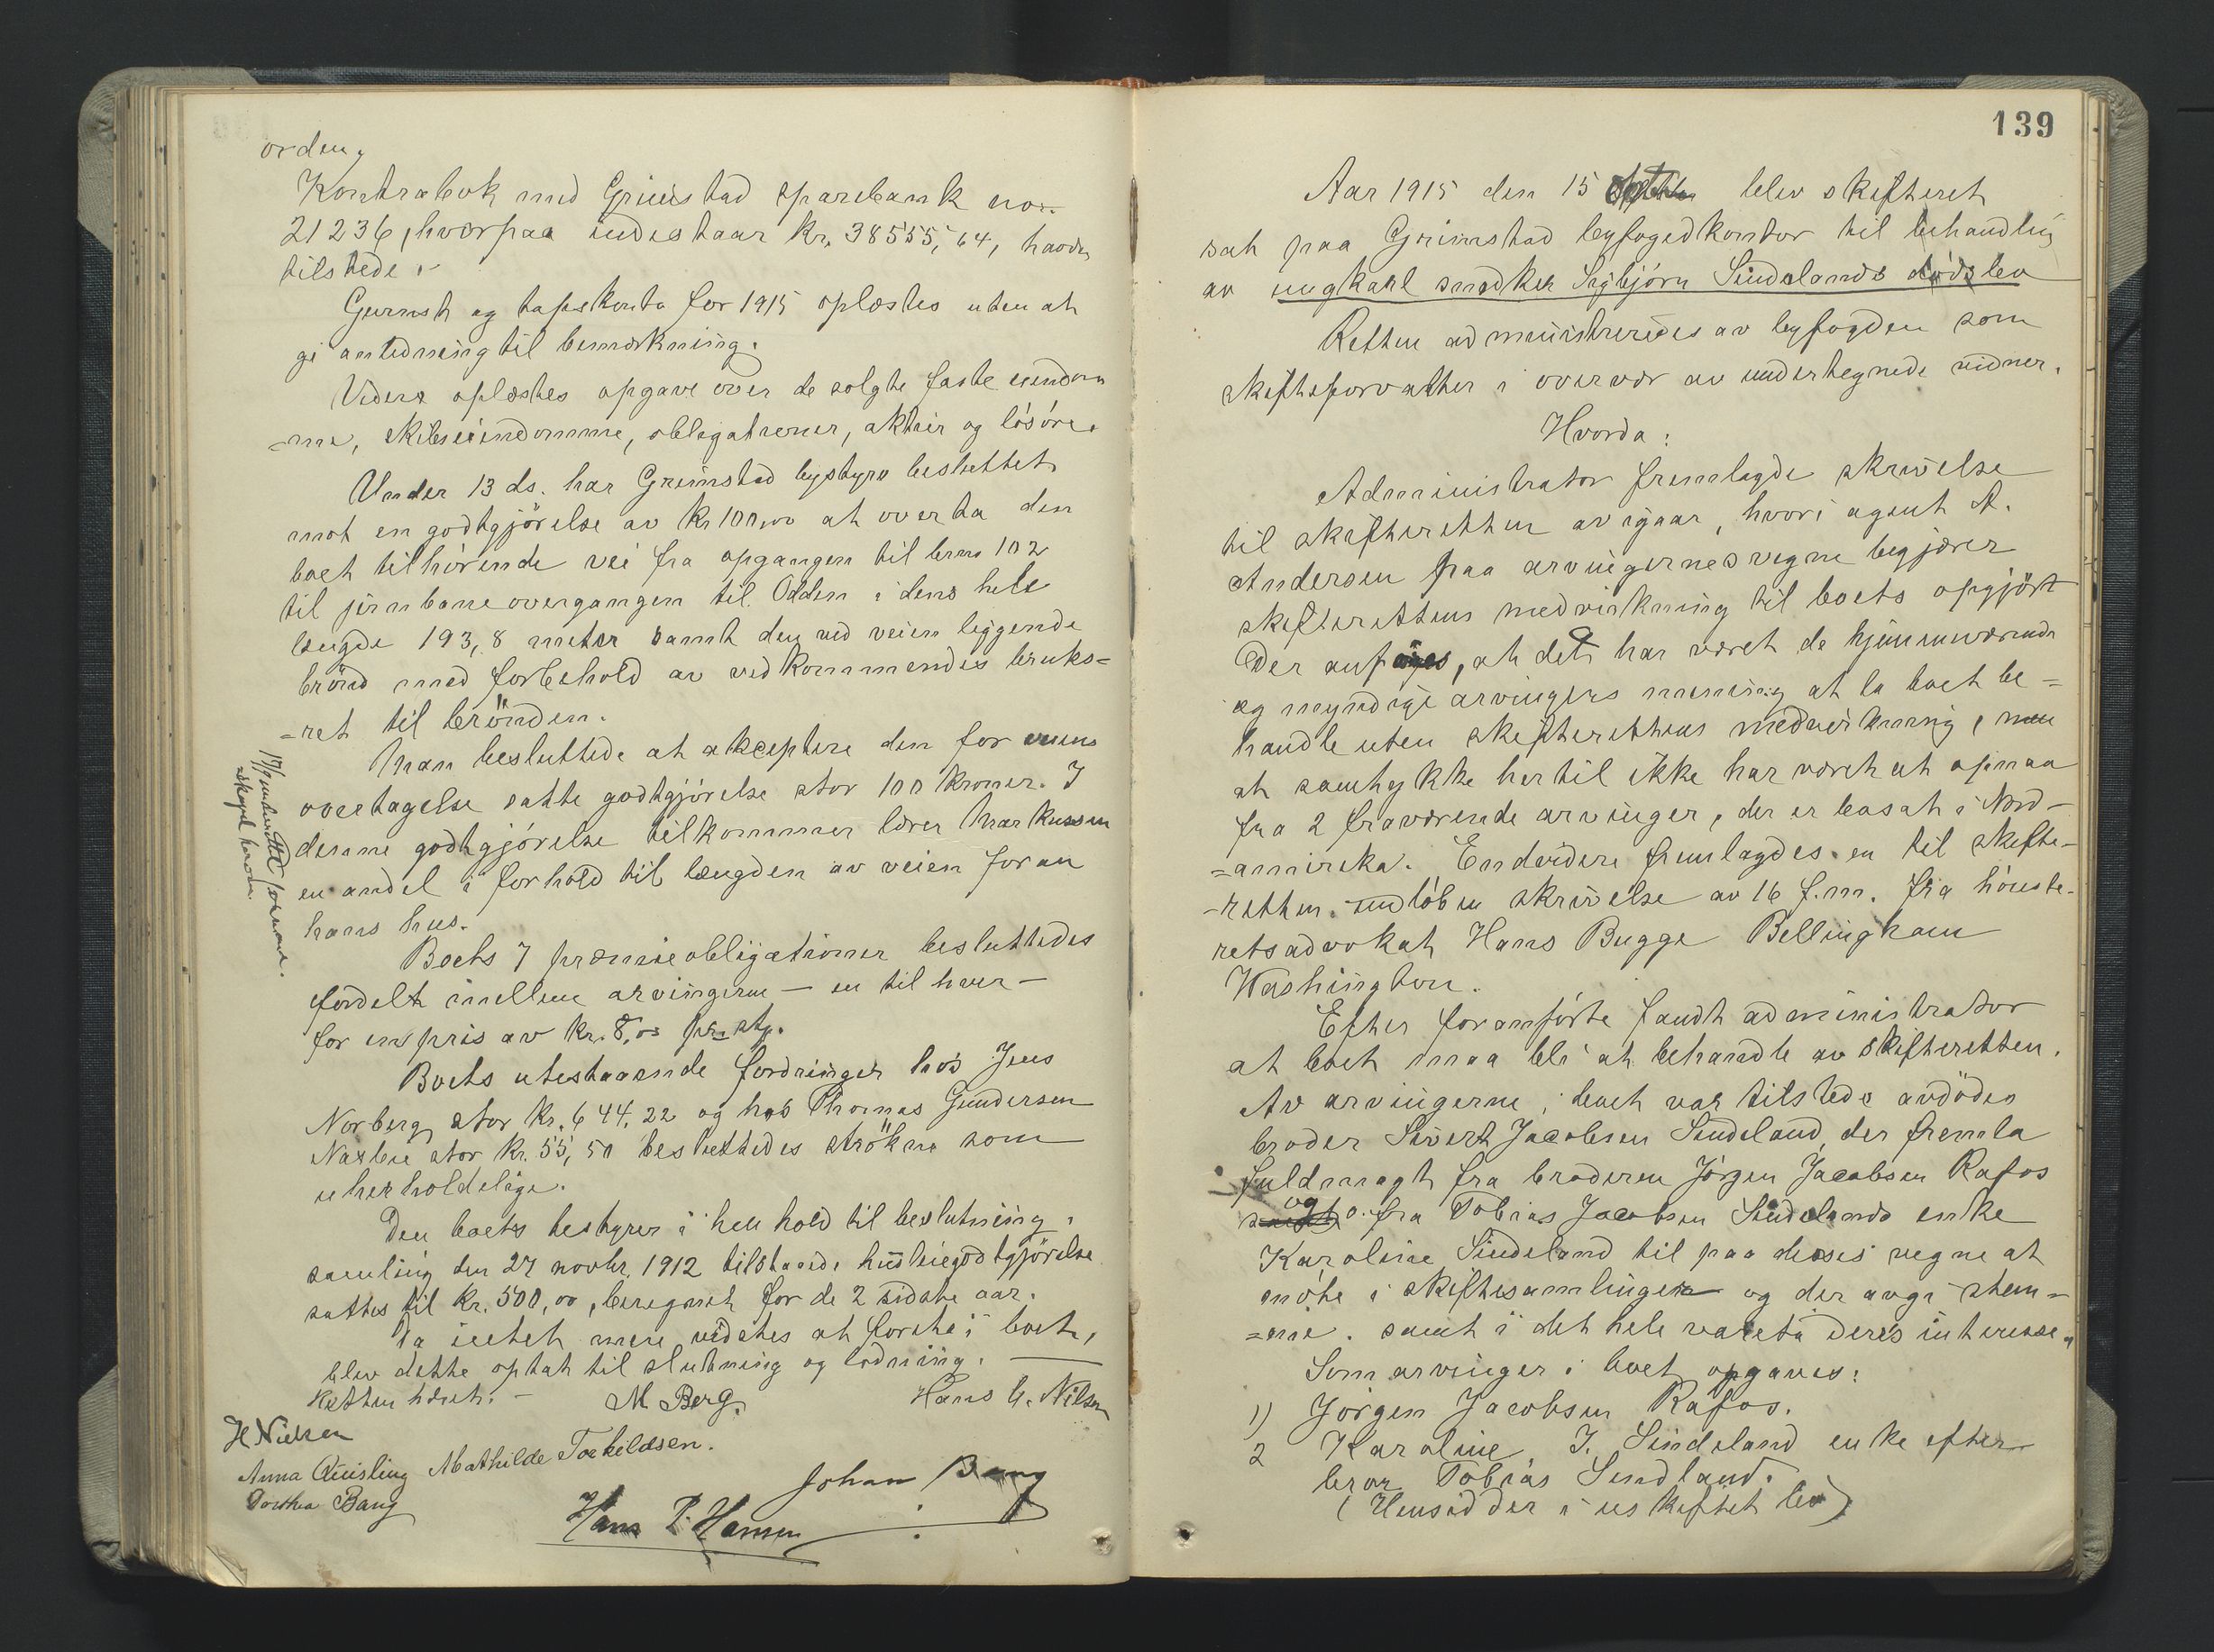 orden,
Kontrabok med Grimstad sparebank no.
21236, hvorpaa indestaar kr. 38555,64, havdes
tilstede.
Gevinst og tapskonto for 1915 oplæstes uten at
gi anledning til bemærkning.
Videre oplæstes opgave over de solgte faste eiendom
=me, skibseiendomme, obligationer, aktier og lösöre.
Under 13 ds. har Grimstad bystyre besluttet
mot en godtgjörelse av kr 100,00 at overta den
boet tilhörende vei fra opgangen til brno 102
til jernbaneovergangen til Odden i dens hele
længde 193,8 meter samt den ved veien liggende
brönd med forbehold av vedkommendes bruks=
=ret til brönden.
Man besluttede at akceptere den for veiens
overtagelse satte godtgjörelse stor 100 kroner. I
denne godtgjörelse tilkommer lærer Markussen
en andel i forhold til længden av veien foran
hans hus.
Boets 7 præmieobligationer besluttedes
fordelt mellem arvingerne – en til hver –
for en pris av kr. 8,00 pr. stk.
Boets utestaaende fordringer hos Jens
Norberg stor kr. 644,22 og hos Thomas Gundersen
stor kr. 55,50 besluttedes strökne som
uerholdelige.
Den boets bestyrer i henhold til beslutning i
samling den 27 novbr. 1912 tilstaaede husleiegodtgjörelse
sattes til kr. 500,00, beregnet for de 2 sidste aar.
Da intet mere vidstes at foreta i boet,
blev dette optat til slutning og lodning.
Retten hævet. – M Berg. Hans C. Nilsen
H Nielsen
Anna Quisling Mathilde Torkildsen.
Dorthea Bang Johan Bang
Hans P. Hansen
139
Aar 1915 den 15 blev skifteret
sat paa Grimstad byfogedkontor til behandling
av ungkarl snedker Sigbjörn Sindelands dödsbo
Retten administreredes av byfogden som
skifteforvalter i overvær av undertegnede vidner.
Hvorda:
Administrator fremlagde skrivelse
til skifteretten av igaar, hvori agent A.
Andersen paa arvingernes vegne begjærer
skifterettens medvirkning til boets opgjör
Der anföres, at det har været de hjemmeværende
og myndige arvingers mening at la boet be=
handle uten skifterettens medvirkning, men
at samtykke hertil ikke har været at opnaa
fra 2 fraværende arvinger, der er bosat i Nord-
=amerika. Endvidere fremlagdes en til skifte-
-retten indlöben skrivelse av 16 f.m. fra höieste-
retsadvokat Hans Bugge Bellingham
Washington.
Efter foranförte fandt administrator
at boet maa bli at behandle av skifteretten.
Av arvingerne i boet var tilstede avdödes
broder Sivert Jacobsen Sindeland, der fremla
fuldmagt fra broderen Jörgen Jacobsen Rafos
og fra Tobias Jacobsen Sindelands enke
Karoline Sindeland til paa disses vegne at
möte i skiftesamlinger og der avgi stem=
=me. samt i det hele vareta deres interesse.
Som arvinger i boet opgaves:
1) Jörgen Jacobsen Rafos.
2 Karoline J. Sindeland enke efter
bror Tobias Sindland.
(Hensidder i uskiftet bo)